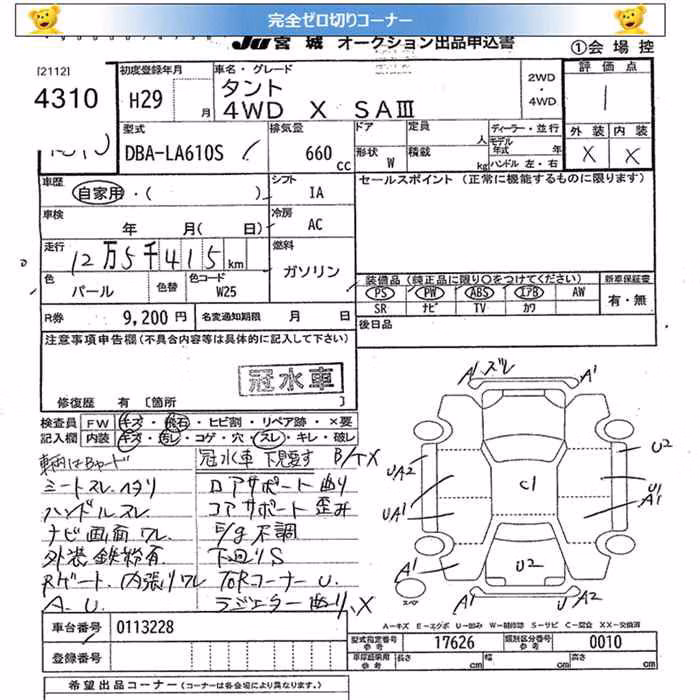 完全ゼロ切りコーナー
JU 宮城 オークション出品申込書 ①会場控
[2112] 初度登録年月 車名・グレード 2WD・4WD 評価点
4310 H29 月 タント 1
4WD X SAⅢ
外装 内装
X X
型式 排気量 ドア 定員 人 ディーラー・並行
DBA-LA610S 660 cc 形状 W 積載 kg モデル年式 年 ハンドル 左・右
車歴 自家用・( ) シフト IA セールスポイント (正常に機能するものに限ります)
車検 年 月( 日) 冷房 AC
走行 12万5千415 km 燃料 ガソリン
色 パール 色替 色コード W25
装備品 (純正品に限り○をつけてください) 新車保証書
PS PW ABS エアB AW 有・無
SR ナビ TV カワ
R券 9,200円 名変通知期限 月 日 後日品
注意事項申告欄(不具合内容等は具体的に記入して下さい)
冠水車
修復歴 有 [箇所 ]
検査員 FW キズ・飛石・ヒビ割・リペア跡・×要
記入欄 内装 キズ・汚レ・コゲ・穴・スレ・キレ・破レ
冠水車 下見渡す B/T X
シートスレ ヘタリ
ハンドルスレ コアサポート歪み
ナビ画面ワレ E/g不調
外装鉄粉有 下回りS
Rゲート内張りワレ
A.U. ラジエター曲り X
A1 ズレ A1
UA2 U2
UA1 C1 U1
A1
A1 U2
スペア A1 UA2
車台番号 0113228
登録番号
A-キズ E-エクボ U-凹み W-補修跡 S-サビ C-腐食 XX-交換済
型式指定番号 参考 17626 類別区分番号 参考 0010
車庫証明用 参考 長さ cm 幅 cm 高さ cm
希望出品コーナー (コーナーは各会場により異なります。)